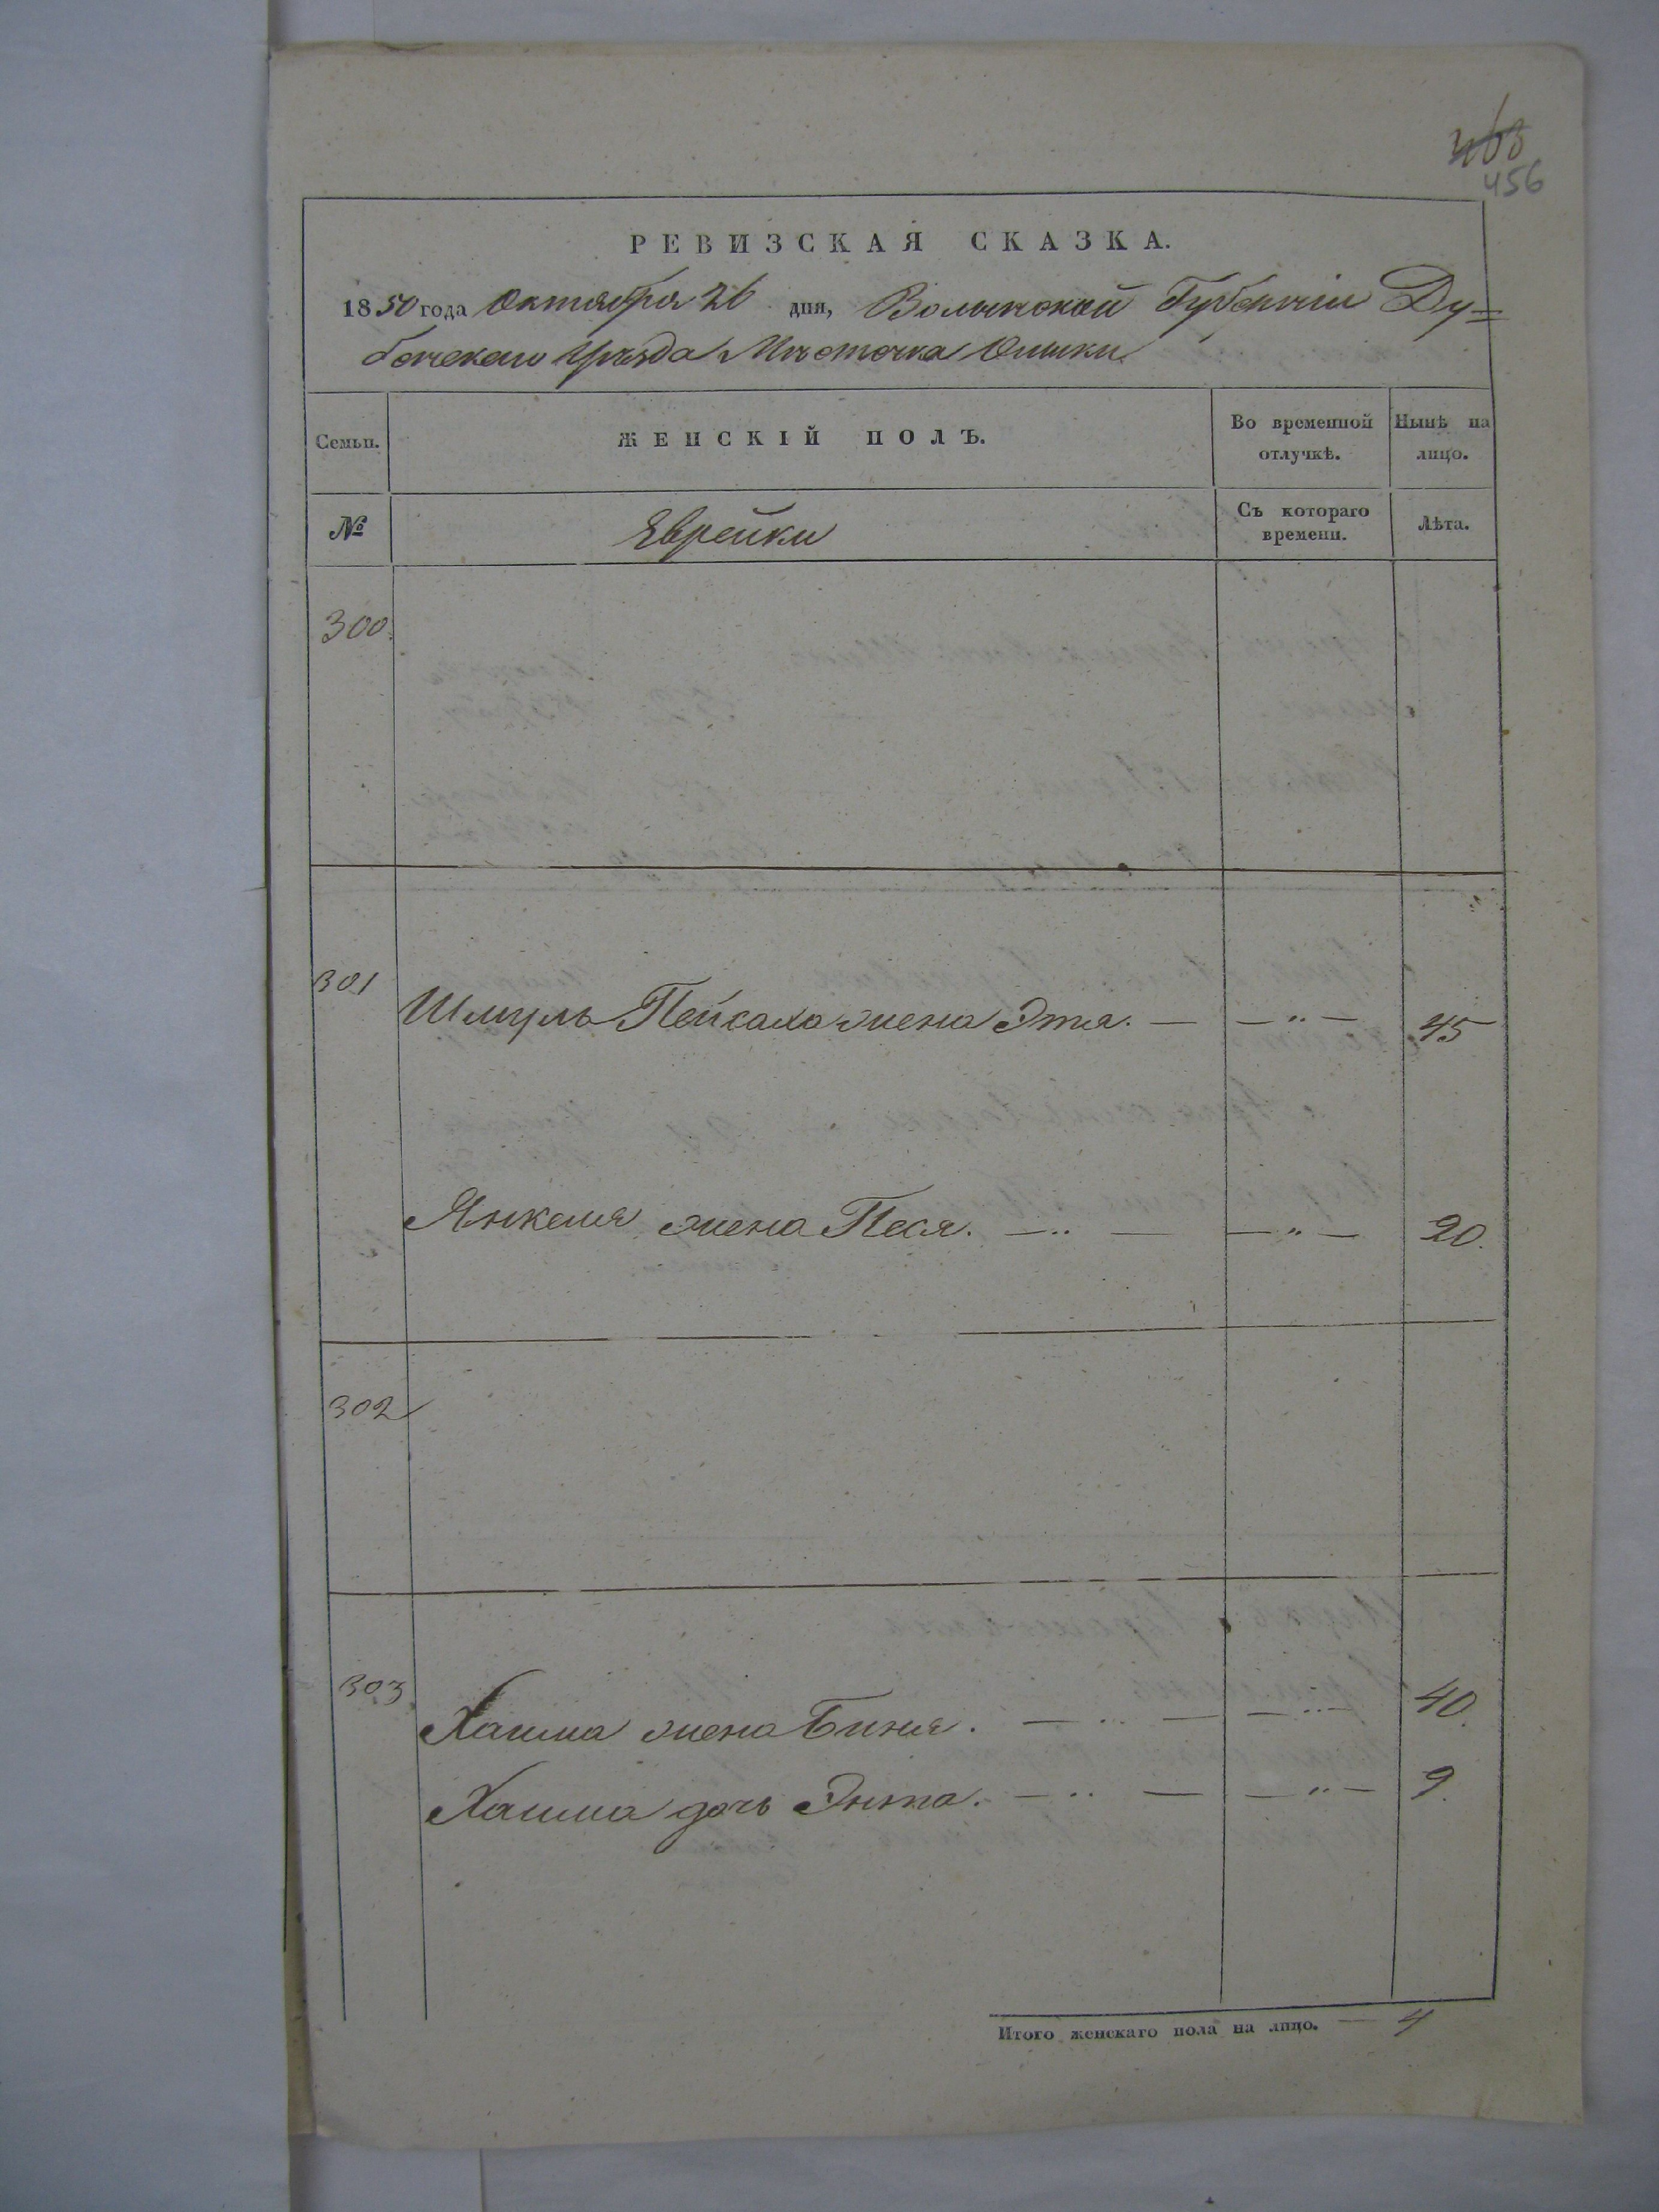 463
456
РЕВИЗСКАЯ СКАЗКА.
1850 года Октября 26 дня, Волынской Губерніи Ду=
бенскаго Уѣзда Мѣстечка Олыки
Семьи. ЖЕНСКІЙ ПОЛЪ. Во временной отлучкѣ. Нынѣ на лицо.
№ Еврейки Съ котораго времени. Лѣта.
300.
301 Шмуль Пейсаха жена Этя. — — „ — 45
Янкеля жена Песя. — „ — — „ — 20.
302
303 Хаима жена Биня. — „ — — „ — 40.
Хаима дочь Энта. — „ — — „ — 9.
Итого женскаго пола на лицо. — 4